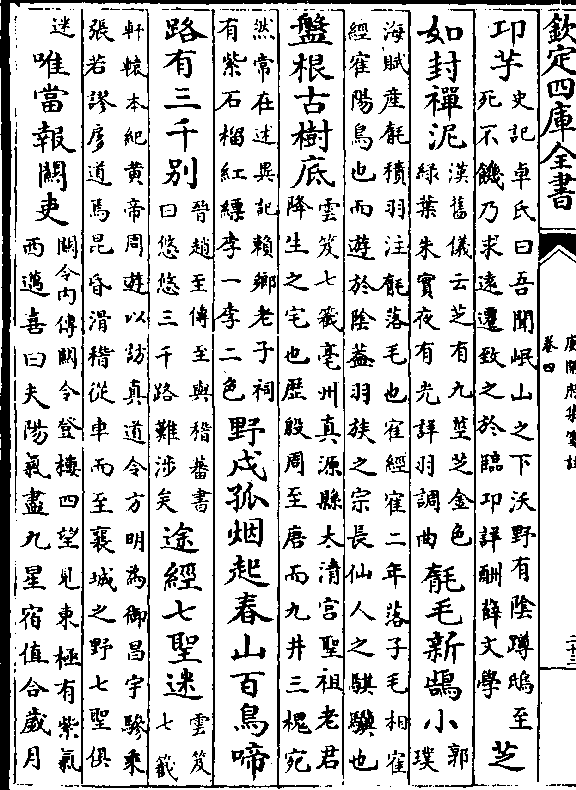 欽定四庫全書
庾開府集箋註
卷四
二十三
卭芋
史記卓氏曰吾聞岷山之下沃野有陰蹲鴟至
死不饑乃求逺遷致之於臨卭詳酬薛文學
芝
如封禪泥
漢舊儀云芝有九莖芝金色
緑葉朱實夜有光詳羽調曲
毻毛新鵠小
郭
璞
海賦産毻積羽注毻落毛也寉經寉二年落子毛相寉
經寉陽鳥也而遊於陰葢羽族之宗長仙人之騏驥也
盤根古樹底
雲笈七籖亳州真源縣太清宫聖祖老君
降生之宅也歴殷周至唐而九井三槐宛
然常在述異記頼鄉老子祠
有紫石榴紅縹李一李二色
野戍孤烟起春山百鳥啼
路有三千别
晉趙至傳至與稽蕃書
曰悠悠三千路難涉矣
途經七聖迷
雲笈
七籖
軒轅本紀黄帝周遊以訪真道令方明為御昌宇驂乗
張若謬彦道馬昆昏滑稽從車而至襄城之野七聖俱
迷
唯當報關吏
關令内傳關令登樓四望見東極有紫氣
西邁喜曰夫陽氣盡九星宿值合歲月